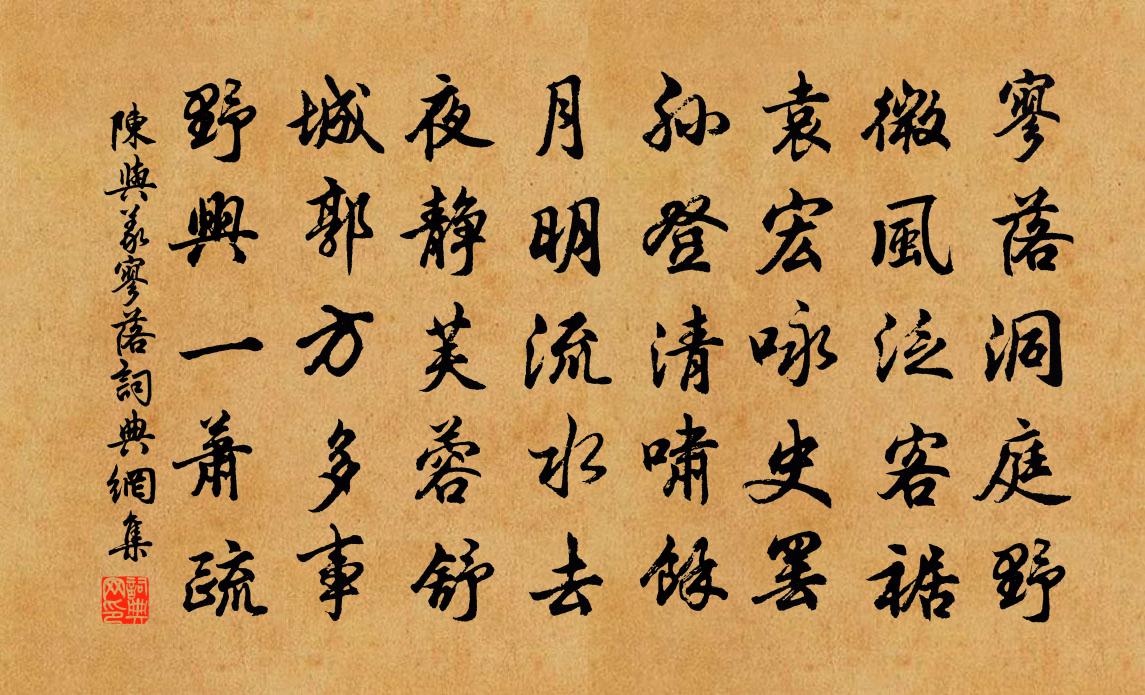 寥落洞庭野
微風泛客裾
袁宏咏史罢
孫登清嘯餘
月明流水去
夜靜芙蓉舒
城郭方多事
野興一蕭疏
陳與義寥落詞典網集
詞典网印